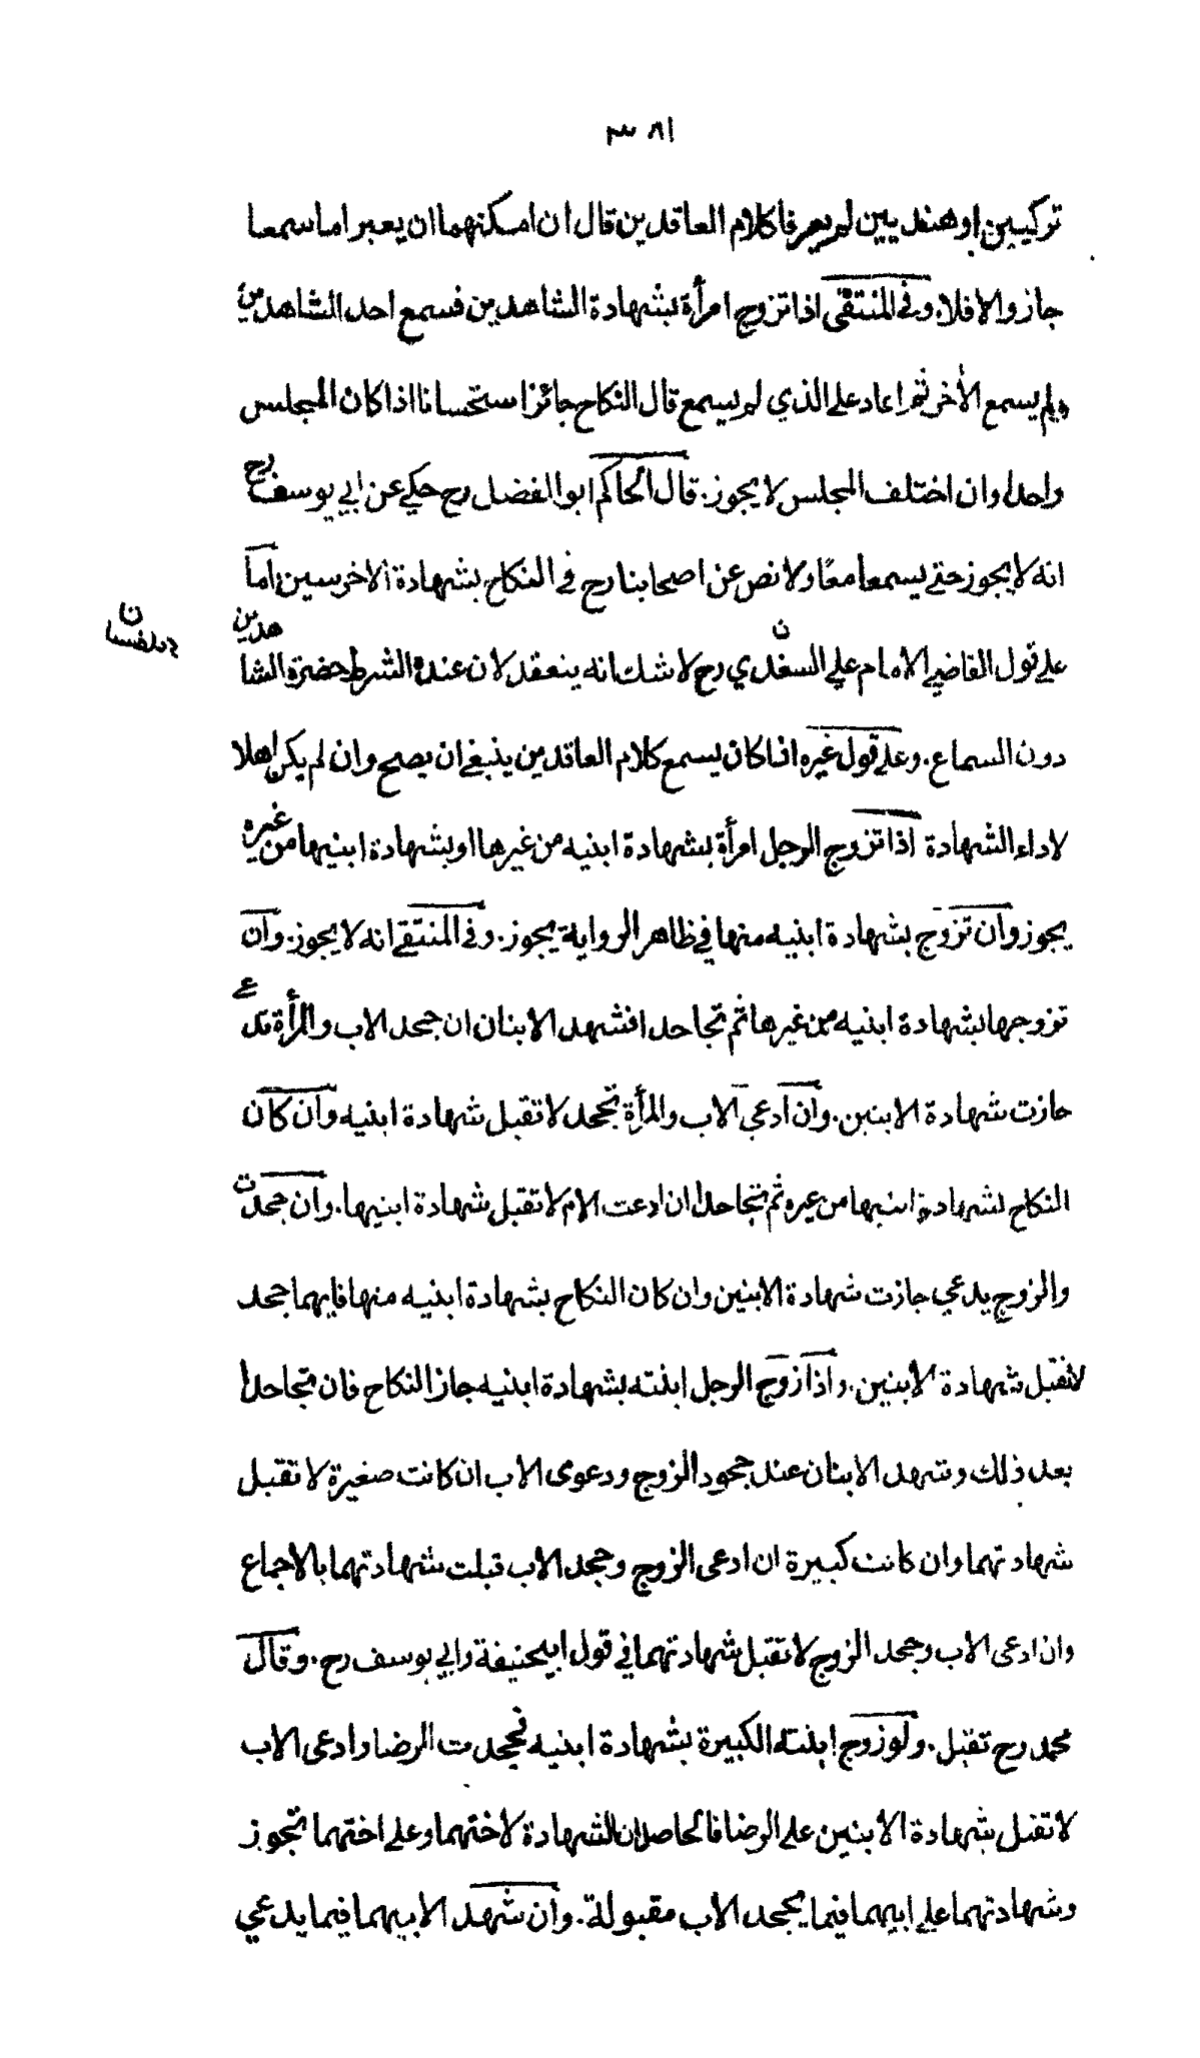 ٣٨١
تركيين او هنديين لم يعرفا كلام العاقدين قال ان امكنهما ان يعبرا ما سمعا
جاز والا فلا، وفى المنتقى اذا تزوج امرأة بشهادة الشاهدين فسمع احد الشاهدين
ولم يسمع الأخر ثم اعاد على الذي لم يسمع قال النكاح جائز استحسانا اذا كان المجلس
واحدا وان اختلف المجلس لا يجوز. قال الحاكم ابو الفضل رح حكي عن ابي يوسف رح
انه لا يجوز حتى يسمعا معًا ولا نص عن اصحابنا رح فى النكاح بشهادة الاخرسين اما
على قول القاضي الامام علي السغدي رح لا شك انه ينعقد لان عنده الشرط حضرة الشاهدين
ن
دون السماع. وعلى قول غيره اذا كان يسمع كلام العاقدين ينبغي ان يصح وان لم يكن اهلا
لاداء الشهادة اذا تزوج الرجل امرأة بشهادة ابنيه من غيرها او بشهادة ابنيها من غيره
يجوز وان تزوج بشهادة ابنيه منها في ظاهر الرواية يجوز. وفى المنتقى انه لا يجوز. وان
تزوجها بشهادة ابنيه من غيرها ثم تجاحدا فشهد الابنان ان جحد الاب والمرأة تدعي
جازت شهادة الابنين. وان ادعى الاب والمرأة تجحد لا تقبل شهادة ابنيه وان كان
النكاح بشهادة ابنيها من غيره ثم تجاحدا ان ادعت الام لا تقبل شهادة ابنيها. وان جحدت
والزوج يدعي جازت شهادة الابنين وان كان النكاح بشهادة ابنيه منها فايهما جحد
لا تقبل شهادة الابنين. واذا زوج الرجل ابنته بشهادة ابنيه جاز النكاح فان تجاحدا
بعد ذلك وشهد الابنان عند جحود الزوج ودعوى الاب ان كانت صغيرة لا تقبل
شهادتهما وان كانت كبيرة ان ادعى الزوج وجحد الاب قبلت شهادتهما بالاجماع
وان ادعى الاب وجحد الزوج لا تقبل شهادتهما في قول ابيحنيفة وابي يوسف رح. وقال
محمد رح تقبل. ولو زوج ابنته الكبيرة بشهادة ابنيه فجحدت الرضا وادعى الاب
لا تقبل شهادة الابنين على الرضا فالحاصل ان الشهادة لاختهما وعلى اختهما تجوز
وشهادتهما على ابيهما فيما يجحد الاب مقبولة. وان شهد الابيهما فيما يدعي